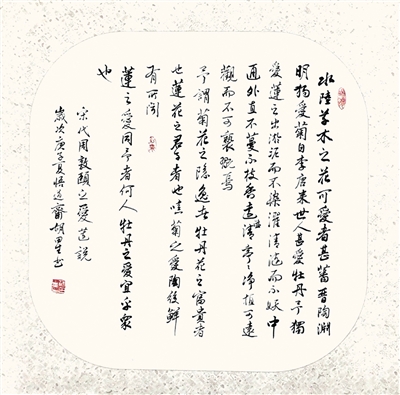 水陸草木之花可愛者甚蕃晋陶淵
明獨愛菊自李唐来世人甚愛牡丹予獨
愛蓮之出淤泥而不染濯清漣而不妖中
通外直不蔓不枝香遠益清亭亭淨植可遠
觀而不可褻翫焉
予謂菊花之隱逸者牡丹花之富貴者
也蓮花之君子者也噫菊之愛陶後鮮
有所聞
蓮之愛同予者何人牡丹之愛宜乎衆
也
宋代周敦頤之愛蓮説
歲次庚子夏悟道齋胡书